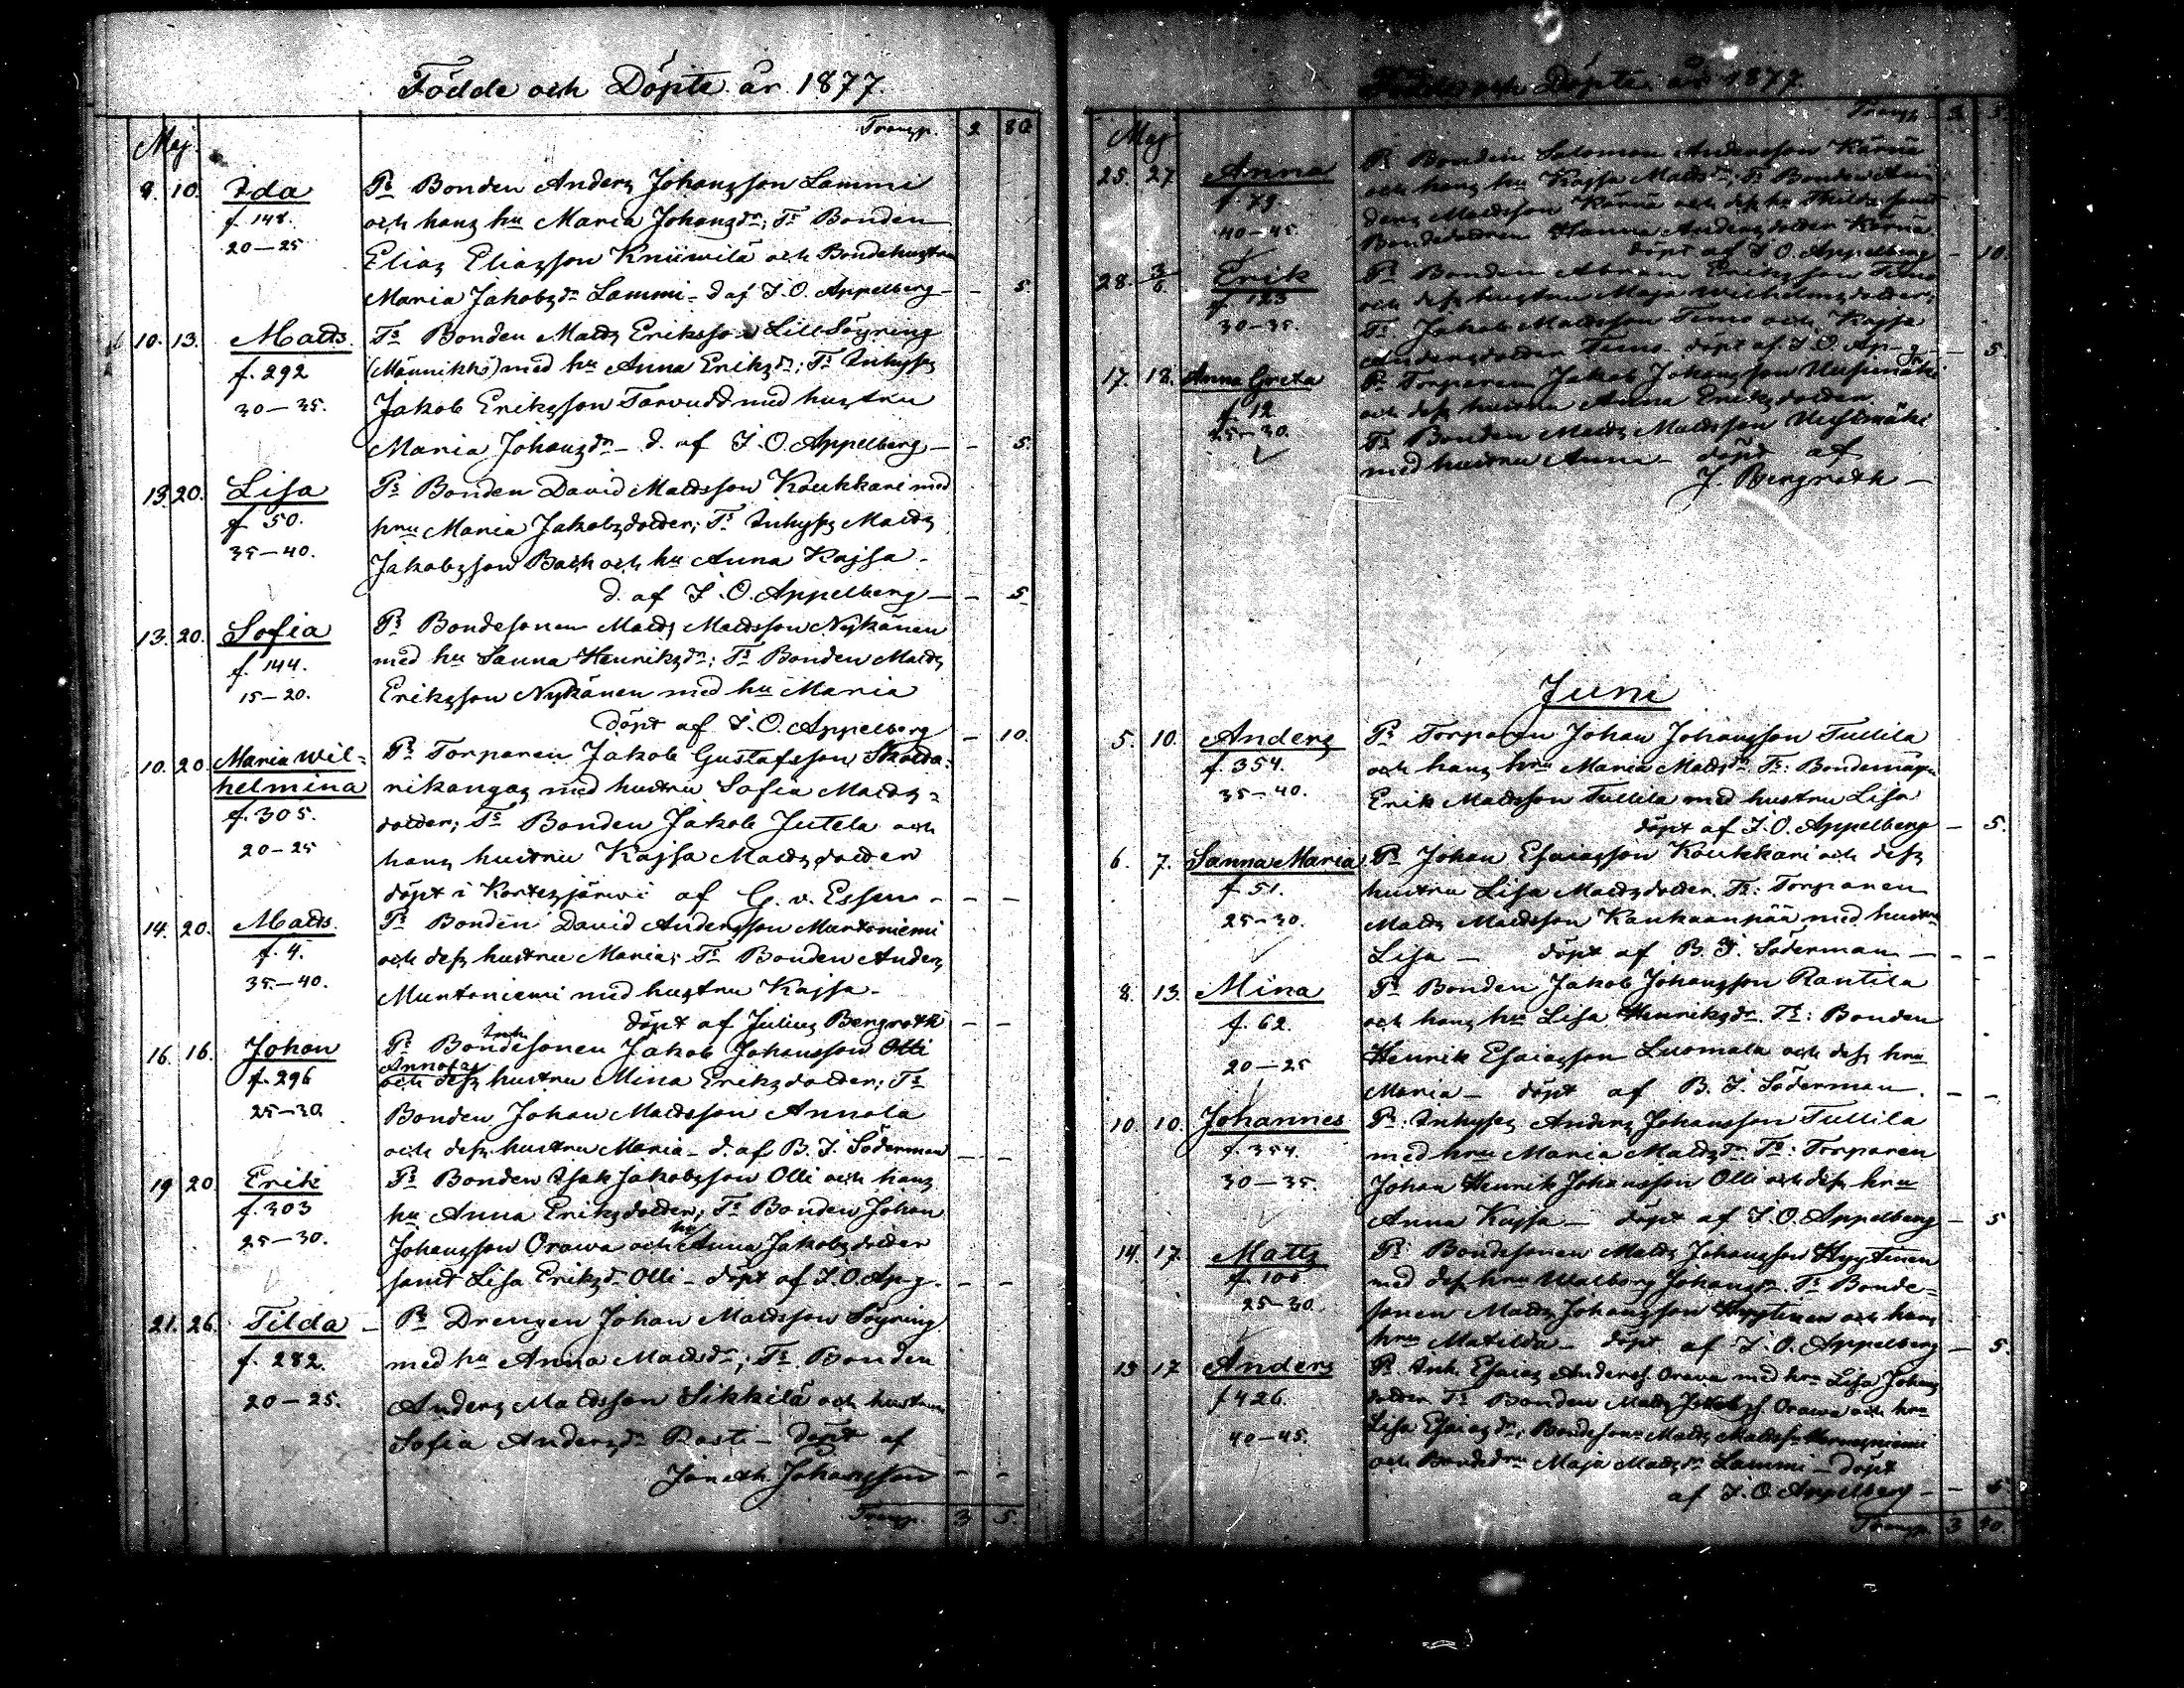 Födde och Döpte år 1877.
Maj.
Transp. 2 80
9. 10. Ida Ps Bonden Anders Johansson Lammi
f. 148. och hans hu Maria Johansdr; Ts Bonden
20–25 Elias Eliasson Kniiwilä och Bondehustru
Maria Jakobsdr Lammi – d af J. O. Appelberg – – 5.
10. 13. Matts. Ps Bonden Matts Eriksson LillSöyring
f. 292 (Männikkö) med hu Anna Eriksdr; Ts Inhyses
30–35. Jakob Eriksson Tarvudd med hustru
Maria Johansdr – d. af J. O. Appelberg – – 5.
13. 20. Lisa Ps Bonden David Mattsson Koukkari med
f 50. hru Maria Jakobsdotter; Ts Inhyses Matts
35–40. Jakobsson Back och hu Anna Kajsa –
d. af J. O. Appelberg – – 5
13. 20. Sofia Ps Bondesonen Matts Mattsson Nykänen
f. 144. med hu Sanna Henriksdr; Ts Bonden Matts
15–20. Eriksson Nykänen med hu Maria
döpt af J. O. Appelberg – 10.
10. 20. Maria Wil= Ps Torparen Jakob Gustafsson
helmina rikangas med hustru Sofia Matts=
f. 305. dotter; Ts Bonden Jakob Jutela och
20–25 hans hustru Kajsa Mattsdotter
döpt i Kortesjärwi af C. v. Essen – – –
14. 20. Matts. Ps Bonden David Andersson Muntoniemi
f. 4. och dess hustru Maria; Ts Bonden Anders
35–40. Muntoniemi med hustru Kajsa –
döpt af Julius Bergroth – –
Inh
16. 16. Johan Ps Bondesonen Jakob Johansson Olli
Annola
f. 296 och dess hustru Mina Eriksdotter; Ts
25–30. Bonden Johan Mattsson Annola
och dess hustru Maria – d. af B. J. Söderman – –
19 20. Erik Ps Bonden Isak Jakobsson Olli och hans
f. 303 hu Anna Eriksdotter; Ts Bonden Johan
hu
25–30. Johansson Orawa och Anna Jakobsdotter
samt Lisa Eriksdr Olli – döpt af J. O. Ap–g. – –
21. 26. Tilda – Ps Drengen Johan Mattsson Söyring
f. 282. med hu Anna Mattsdr; Ts Bonden
20–25. Anders Mattsson Sikkilä och hustru
Sofia Andersdr Rasti – döpt af
Johansson – –
Transp. 3 5.
Födde och Döpte år 1877.
Transp. 3 5.
Maj
25. 27 Anna Ps Bonden Salomon Andersson Kärnä
f. 79. och hans hu Kajsa Mattsdr; Ts Bonden An=
40–45. ders Mattsson Kärnä och dess hu Thilda samt
Bondedottren Hanna Andersdotter Kärnä
döpt af J. O. Appelberg – 10.
28. 3/6 Erik Ps Bonden Abram Eriksson Timo
f. 123 och dess hustru Maja Wilhelmsdotter;
30–35. Ts Jakob Mattsson Timo och Kajsa
Andersdotter Timo döpt af J. O. Ap–g – – 5.
17. 18. Anna Greta Ps Torparen Jakob Johansson Uusimäki
f. 12 och dess hustru Anna Eriksdotter.
25–30. Ts Bonden Matts Mattsson Uusimäki
med hustru Anna – döpt af
J. Bergroth –
Juni
5. 10. Anders Ps Torparen Johan Johansson Tullila
f. 354. och hans hru Maria Mattsdr Ts: Bondemågen
35–40. Erik Mattsson Tullila med hustru Lisa
döpt af J. O. Appelberg – 5.
6. 7. Sanna Maria Ps Johan Esaiasson Koukkari och dess
f 51. hustru Lisa Mattsdotter. Ts: Torparen
25–30. Matts Mattsson Kaukaanpää med hustru
Lisa – döpt af B. J. Söderman – – –
8. 13. Mina Ps Bonden Jakob Johansson Rantila
f. 62. och hans hu Lisa Henriksdr. Ts: Bonden
20–25 Henrik Esaiasson Luomala och dess hru
Maria – döpt af B. J. Söderman. – –
10. 10. Johannes Ps: Inhyses Anders Johansson Tullila
f. 354. med hru Maria Mattsdr Ts: Torparen
30–35. Johan Henrik Johansson Olli och dess hru
Anna Kajsa – döpt af J. O. Appelberg – 5
14. 17. Matts Ps: Bondesonen Matts Johansson Hyytinen
f. 100. med dess hru Walborg Johansdr. Ts Bonde=
25–30. sonen Matts Johansson Hyytinen och hans
hru Matilda – döpt af J. O. Appelberg – 5.
13 17 Anders Ps Inh. Esaias Anderss. Orava med hru Lisa Johans
f 426. dotter Ts Bonden Matts Jakobss. Orawa och hru
40–45. Lisa Esaiasdr; Bondeson Matts Mattss.
och Bondedrn Maja Mattsdr Lammi – döpt
af J. O. Appelberg – – 5
Transp. 3 40.